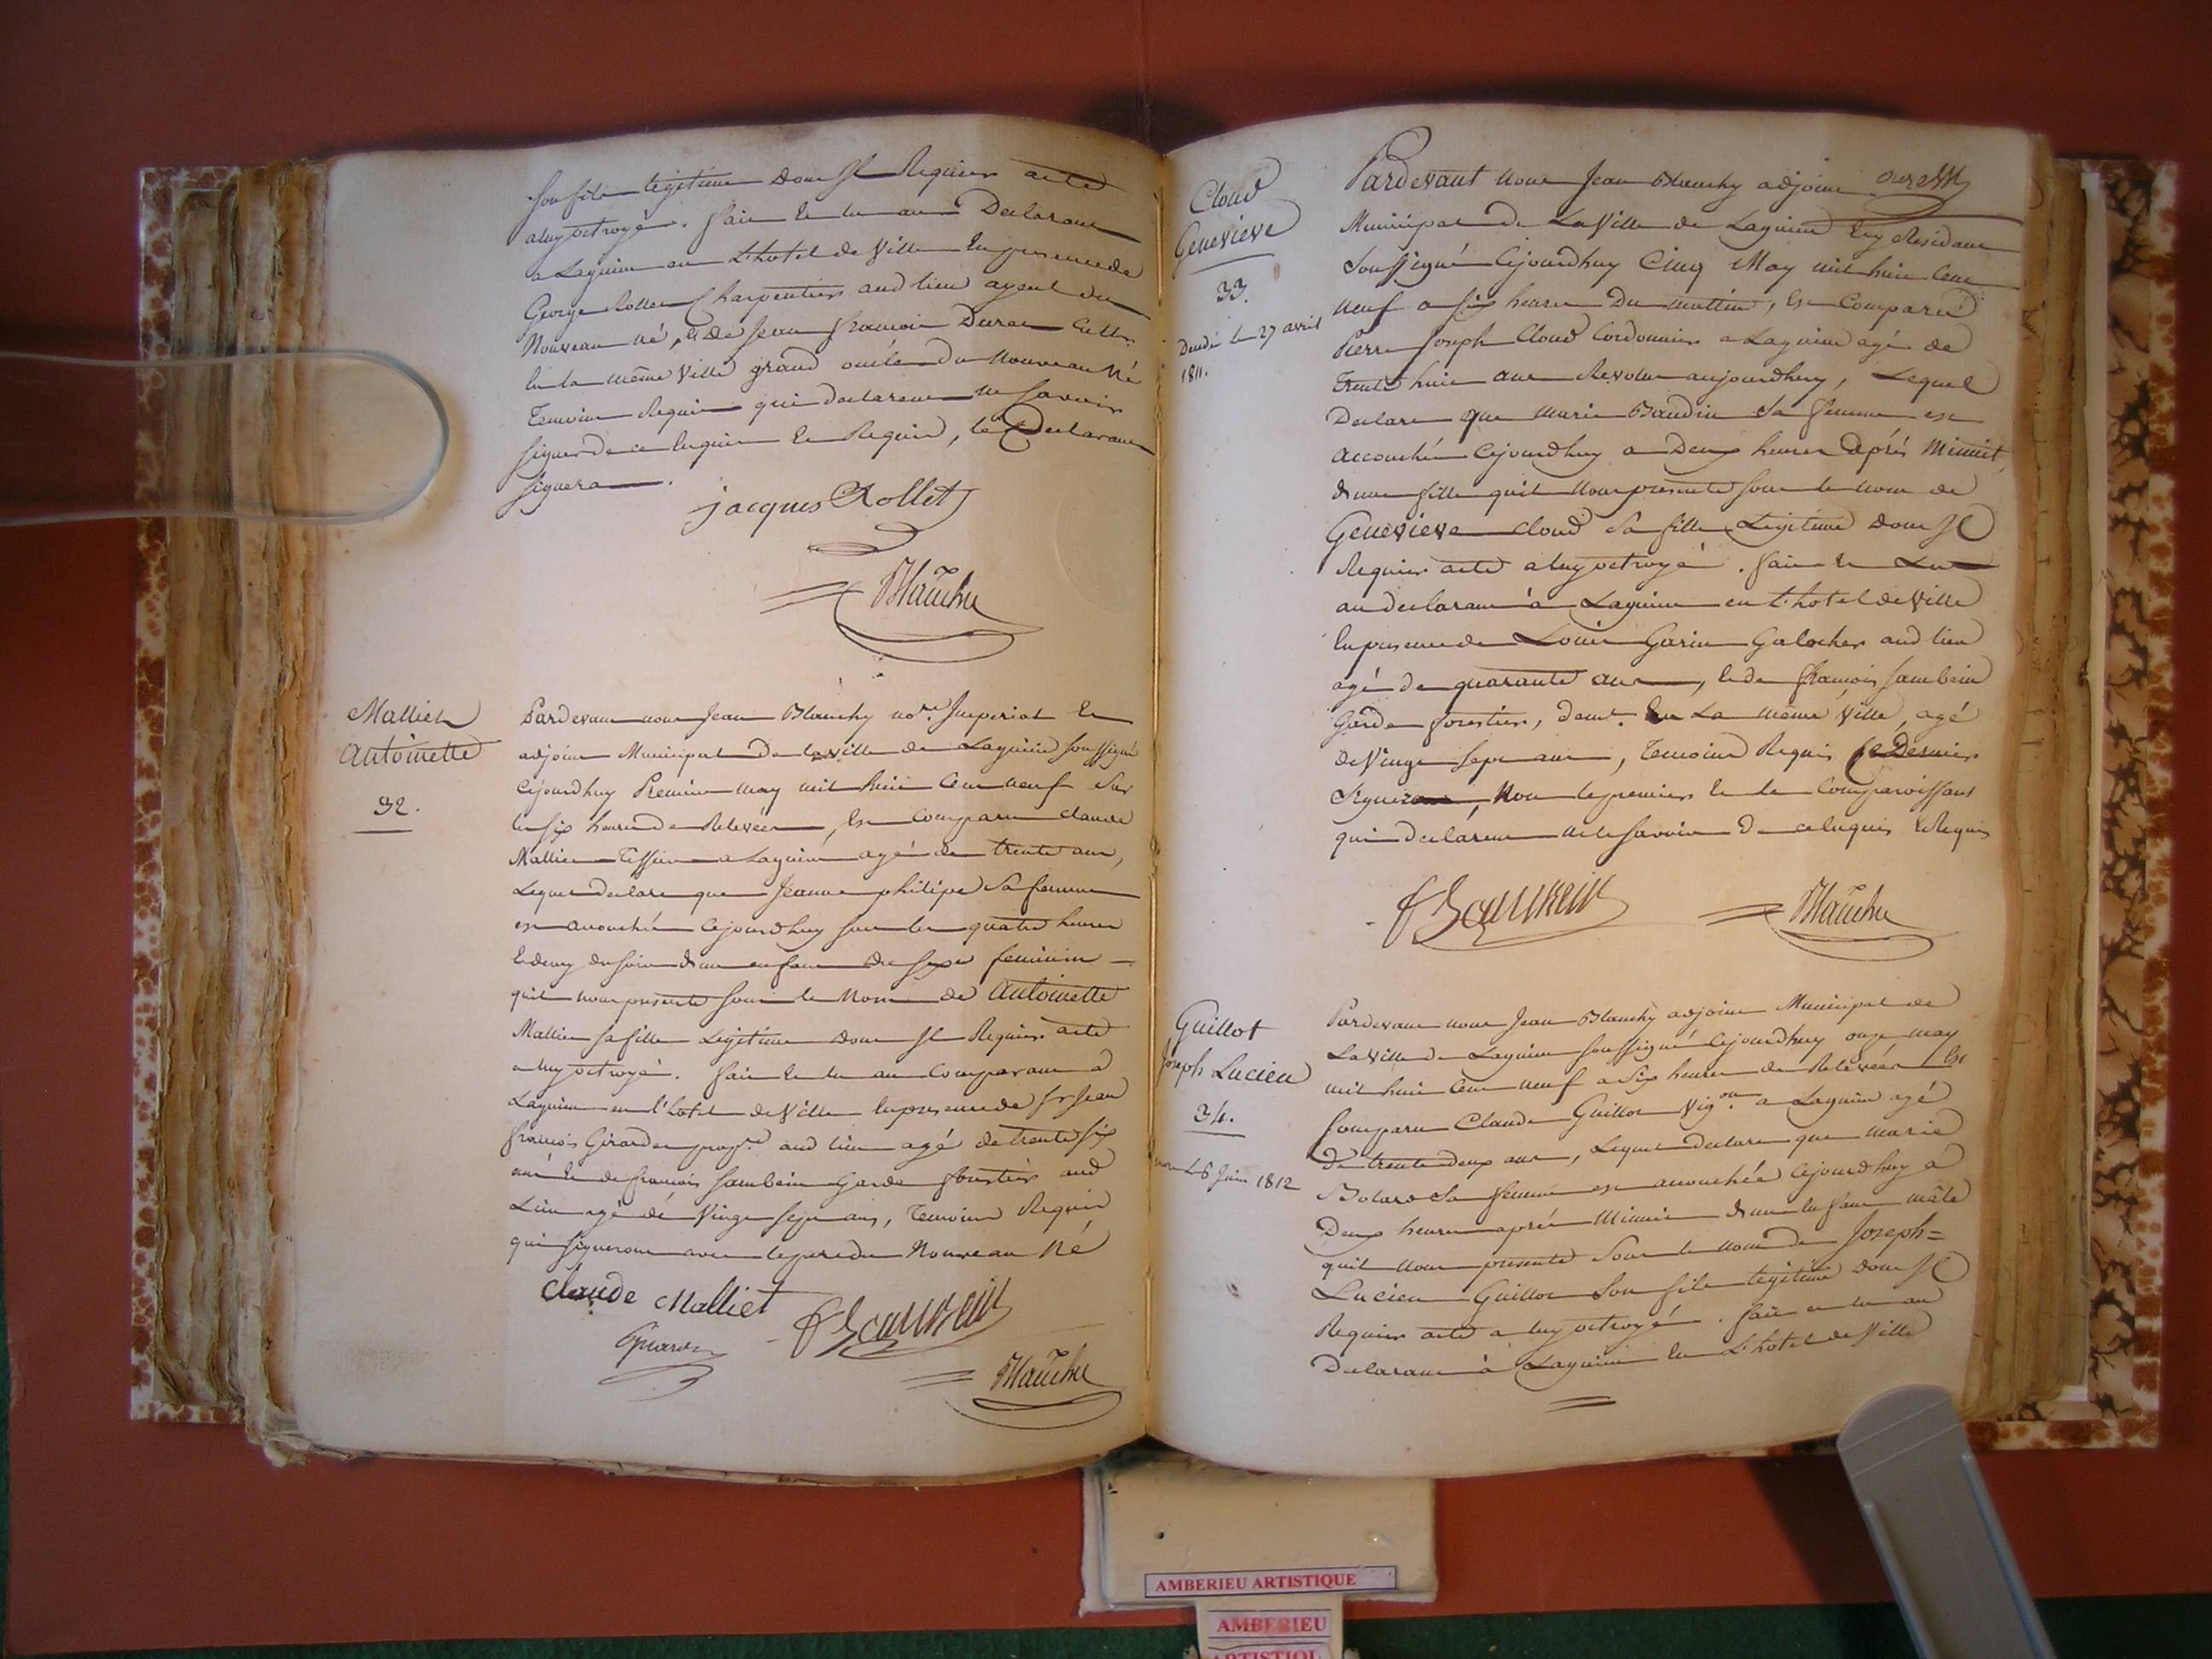 son fils legitime dont Il Requiert acte
a luy octroyé. fait et lu au Declarant
a Lagnieu en L'hotel de Ville En presence de
George Rollet Charpentier aud lieu ayeul du
Nouveau né, et de Jean francois Duran
En la même Ville grand oncle du Nouveau Né
Temoins Requis qui declarent ne Savoir
signer de ce Enquis et Requis, le Declarant
signera.
jacques Rollet
Blanchy
Malliet
Antoinette
32.
Pardevant nous Jean Blanchy no.re Imperial et
adjoint Municipal de la ville de Lagnieu soussigné
Cejourdhuy Premier may mil huit Cent neuf Sur
les six heures de Relevée, Est Comparu claude
Mallier Tissier a Lagnieu agé de trente ans,
Lequel declare que Jeanne philipe Sa femme
est accouchée Cejourdhuy sur les quatre heures
Et demy du soir d'un enfant du sexe feminin
quil nous presente sous le Nom de Antoinette
Mallier sa fille Legitime dont Il Requiert acte
a luy octroyé. fait et lu au Comparant a
Lagnieu en l'hotel de Ville En presence de Sr Jean
francois Girardet aud lieu agé de trente six
ans et de francois Sambein Garde forestier aud
Lieu agé de Vingt sept ans, Temoins Requis
qui signeront avec le pere du Nouveau Né
Claude Malliet
f Sambein
Blanchy
Cloud
Genevieve
33.
le 27 avril
1811.
Pardevant nous Jean Blanchy adjoint
Municipal de La Ville de Lagnieu Ey Residant
Soussigné Cejourdhuy Cinq May mil huit Cent
neuf a six heures Du mattin, Est Comparu
Pierre Joseph Cloud Cordonnier a Lagnieu agé de
Trente huit ans Revolus aujourdhuy, Lequel
Declare que Marie Baudin Sa femme est
accouchée Cejourdhuy a Deux heures Après Minuit,
d'une fille quil Nous presente sous le nom de
Genevieve cloud Sa fille Legitime dont Il
Requiert acte a luy octroyé. fait et Lu
au declarant à Lagnieu en L'hotel de Ville
En presence de Louis Garin Galocher aud lieu
agé de quarante ans, et de francois Sambein
Garde forestier, demt. En La même Ville, agé
de Vingt sept ans, Temoins Requis le Dernier
Signera, Non le premier et le Comparoissant
qui declarent ne le savoir De ce Enquis et Requis
f Sambein
Blanchy
Guillot
Joseph Lucien
34.
mort le 6 Juin 1812
Pardevant nous Jean Blanchy adjoint Municipal de
La Ville de Lagnieu soussigné Cejourdhuy onze may
mil huit Cent neuf a Six heures de Relevée Est
Comparu Claude Guillot Vig.on a Lagnieu agé
De trente deux ans, Lequel Declare que Marie
Bolard Sa femme est accouchée Cejourdhuy à
Deux heures après Minuit d'un Enfant mâle
quil nous presente Sous le nom de Joseph=
Lucien Guillot Son fils legitime dont Il
Requiert acte a luy octroyé. fait et lu au
Declarant à Lagnieu En L'hotel de Ville
AMBERIEU ARTISTIQUE
AMBERIEU